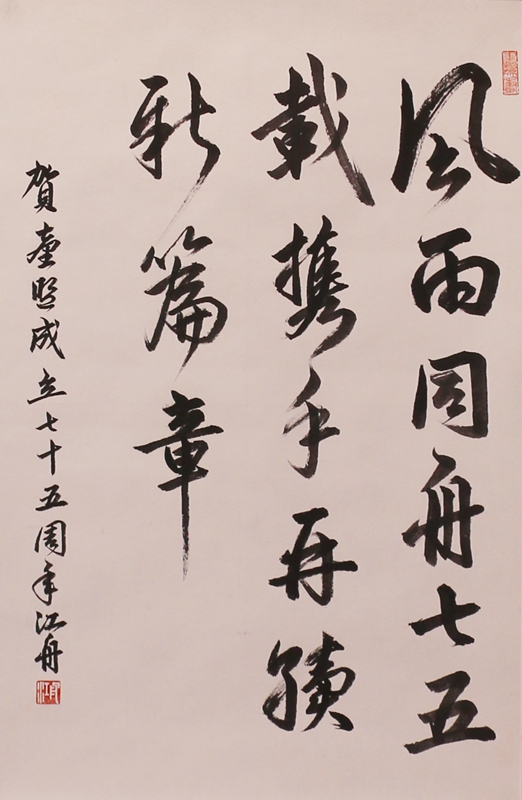 風雨同舟七五
載携手再續
新篇章
賀臺盟成立七十五周年江舟